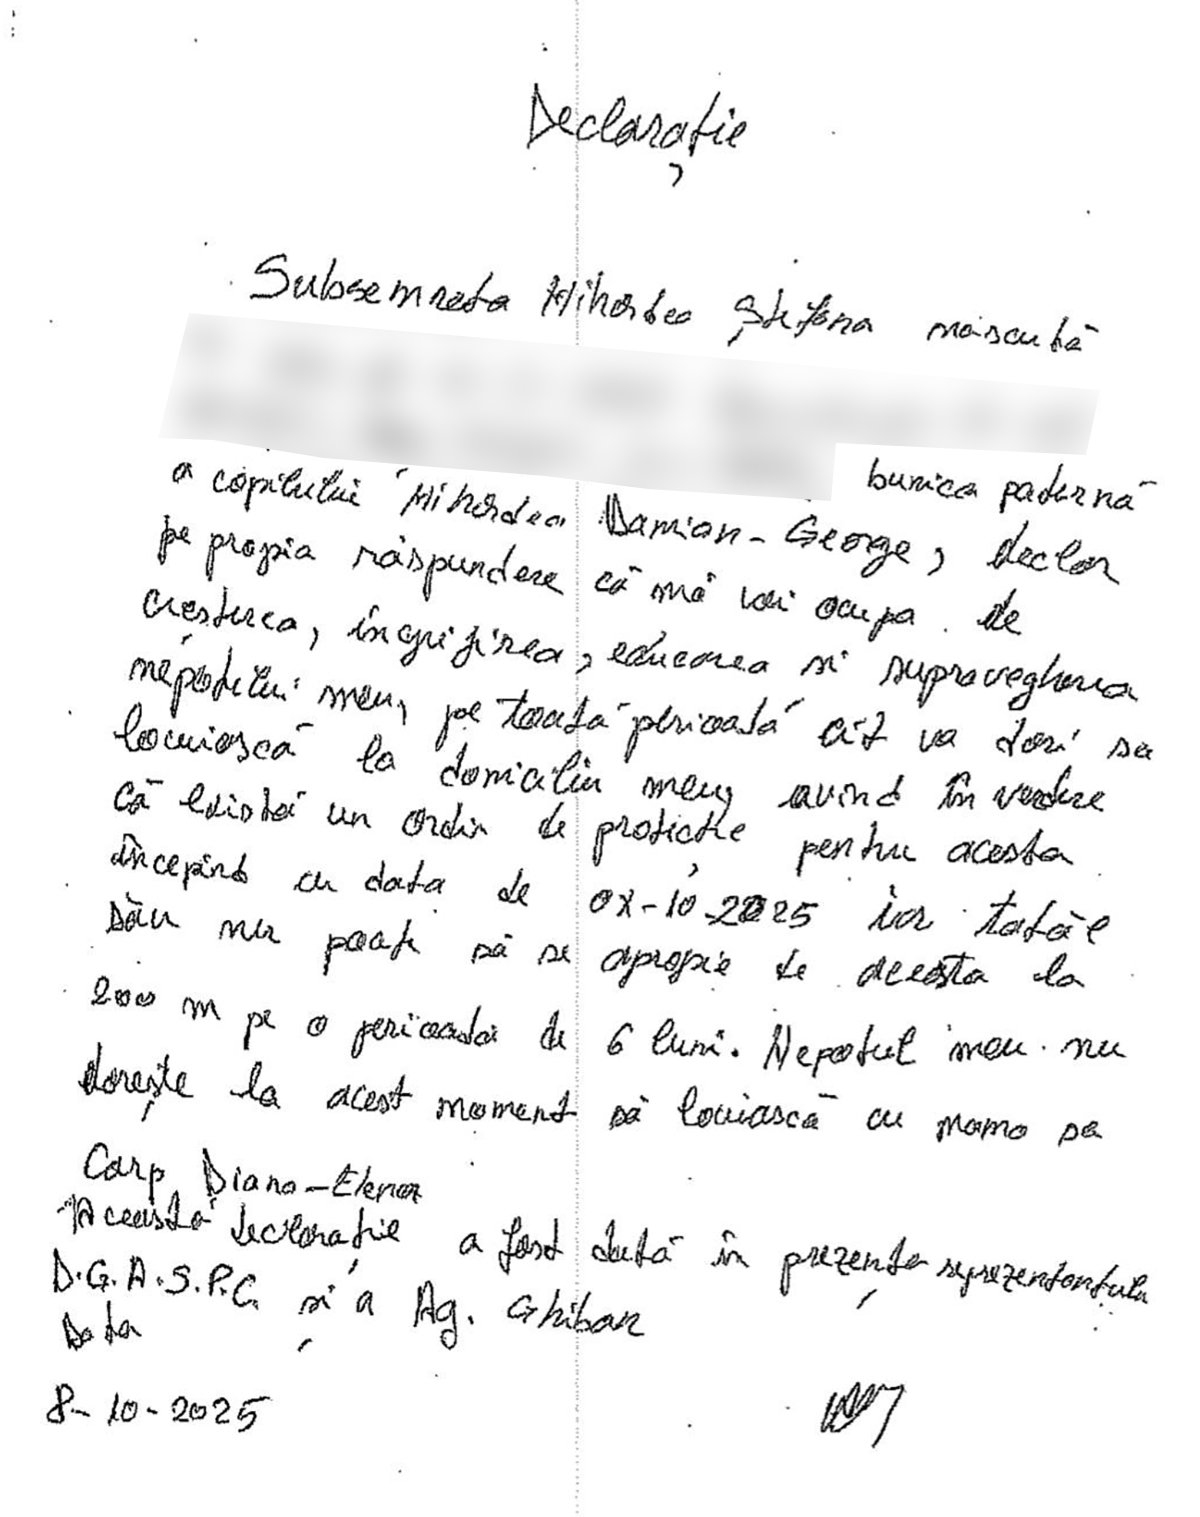 Declarație
Subsemnata Mihordea Ștefana născută
bunica paternă
a copilului Mihordea Damian-George, declar
pe propia răspundere că mă voi ocupa de
creșterea, îngrijirea, educarea și supravegherea
nepotului meu, pe toată perioată cît va dori sa
locuiască la domiciliu meu, avînd în vedere
că există un ordin de protecție pentru acesta
începînd cu data de 0X-10-2025 iar tatăl
său nu poate să se apropie de acesta la
200 m pe o perioada de 6 luni. Nepotul meu nu
dorește la acest moment să locuiască cu mama sa
Carp Diana-Elena
Această declorație a fost dată în prezența reprezentantului
D.G.A.S.P.C. și a Ag. Ghiban
Data
8-10-2025